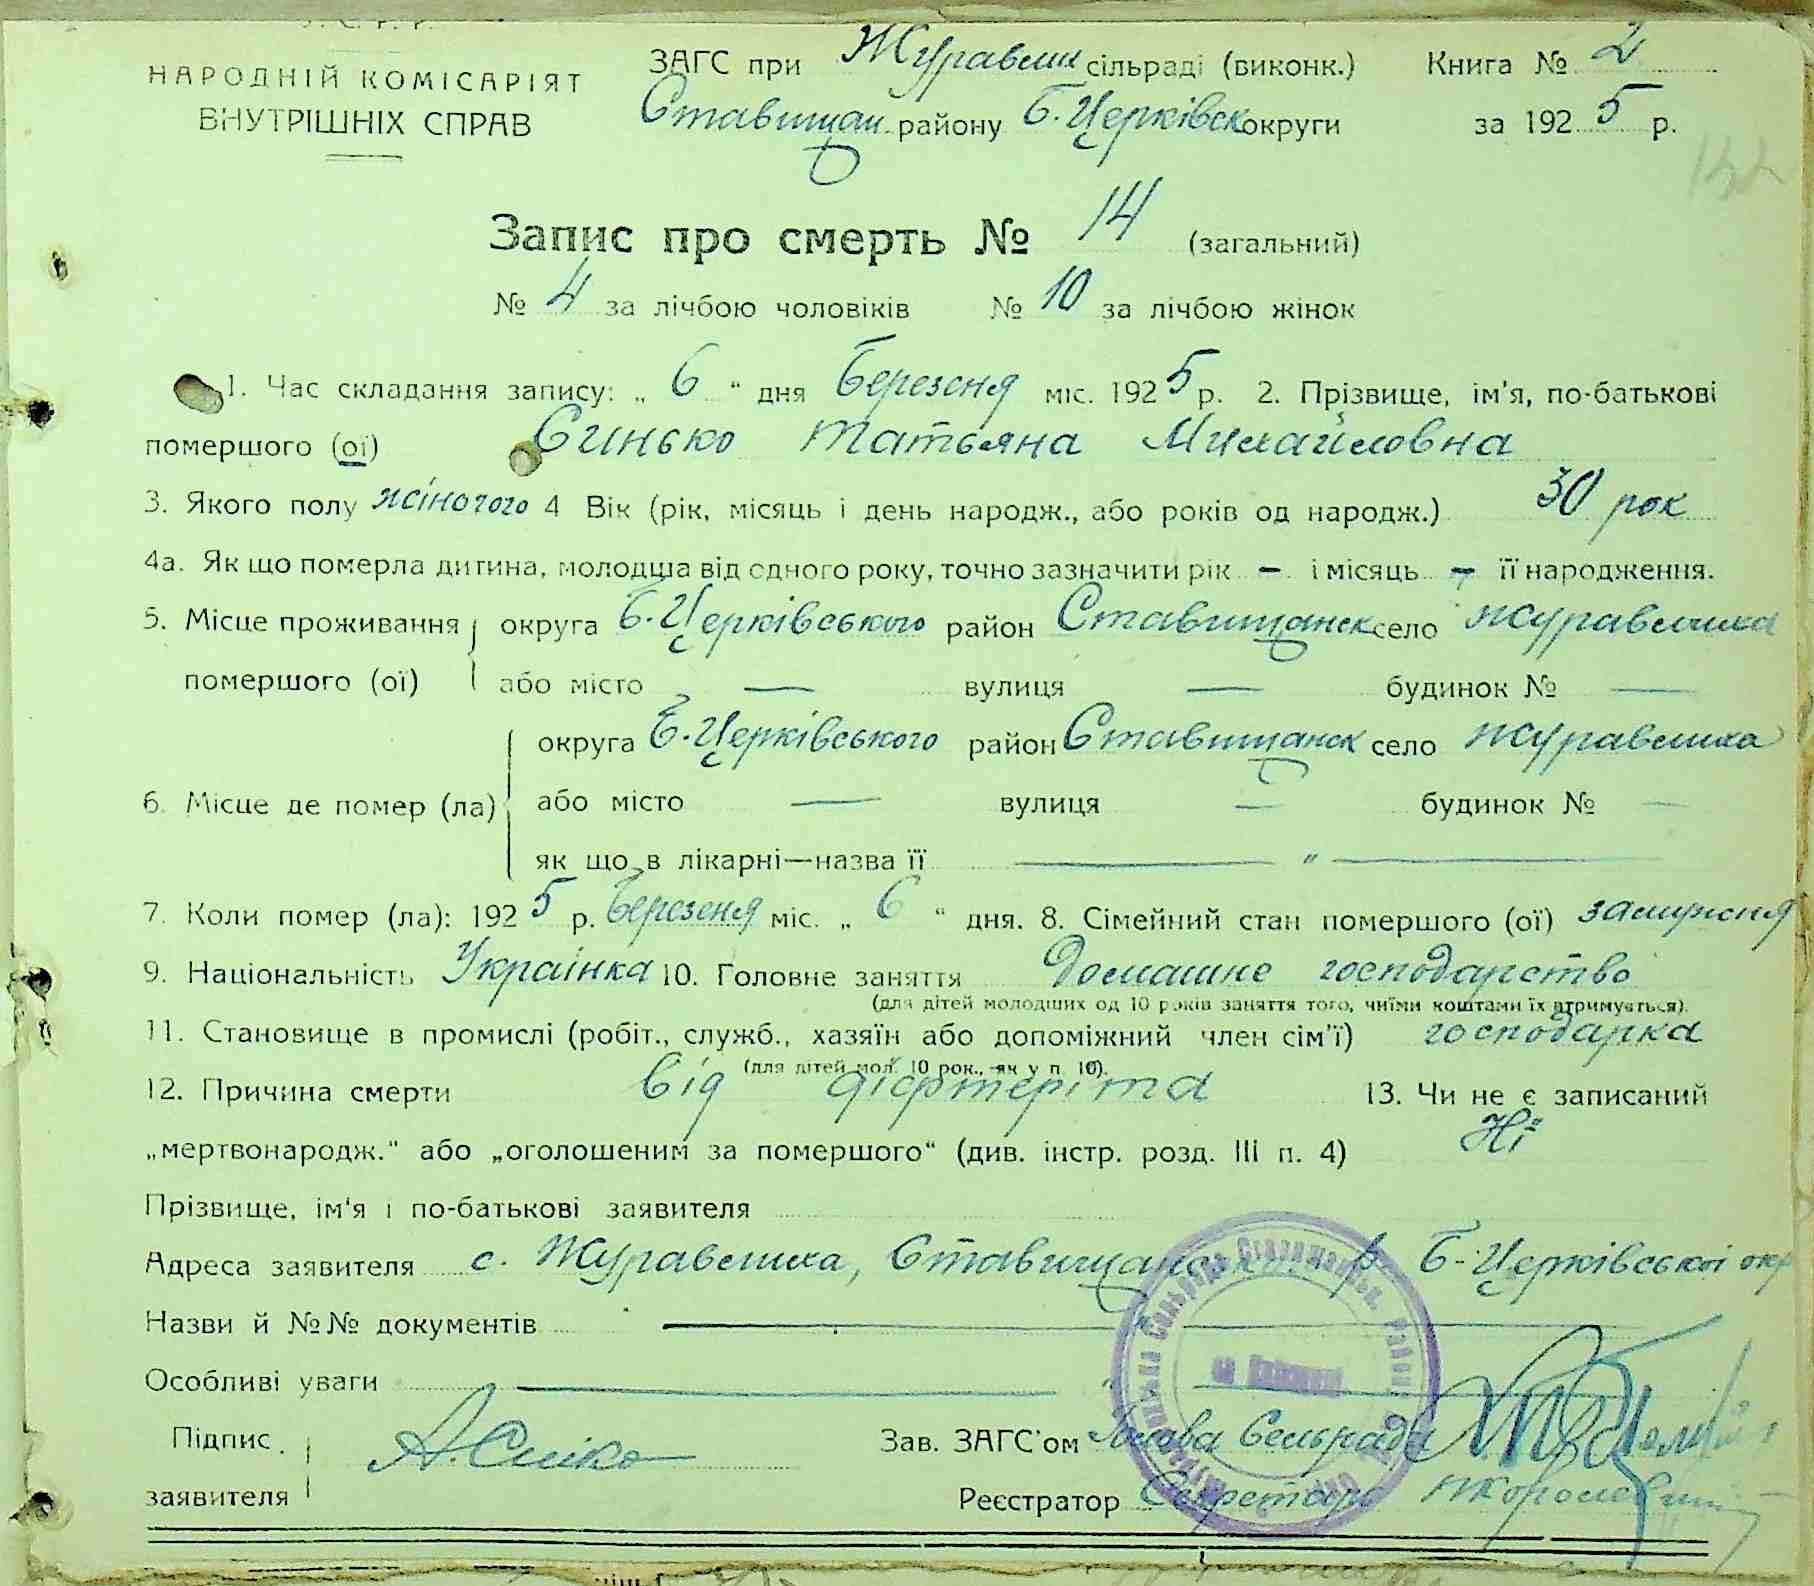 У.С.Р.Р.
НАРОДНІЙ КОМІСАРІЯТ
ВНУТРІШНІХ СПРАВ
ЗАГС при Журавлин сільраді (виконк.) Книга № 2
Ставищан. району Б. Церківськ округи за 1925 р.
Запис про смерть № 14 (загальний)
№ 4 за лічбою чоловіків № 10 за лічбою жінок
1. Час складання запису: „ 6 “ дня Березеня міс. 1925 р. 2. Прізвище, ім'я, по-батькові
помершого (ої) Синько Татьяна Михайловна
3. Якого полу жіночого 4 Вік (рік, місяць і день народж., або років од народж.) 30 рок
4а. Як що померла дитина, молодша від одного року, точно зазначити рік – і місяць – її народження.
5. Місце проживання округа Б. Церківського район Ставищанск село Журавлиха
помершого (ої) або місто — вулиця — будинок № —
округа Б. Церківського район Ставищанск село Журавлиха
6. Місце де помер (ла) або місто — вулиця — будинок № —
як що в лікарні—назва її — „ —
7. Коли помер (ла): 1925 р. Березеня міс. „ 6 “ дня. 8. Сімейний стан помершого (ої) замужня
9. Національність Українка 10. Головне заняття Домашне господарство
(для дітей молодших од 10 років заняття того, чиїми коштами їх втримується).
11. Становище в промислі (робіт., служб., хазяїн або допоміжний член сім'ї) господарка
(для дітей мол. 10 рок., як у п. 10).
12. Причина смерти від діфтеріта 13. Чи не є записаний
„мертвонародж.“ або „оголошеним за помершого“ (див. інстр. розд. III п. 4) Ні
Прізвище, ім'я і по-батькові заявителя
Адреса заявителя с. Журавлиха, Ставищанск р. Б-Церківської окр
Назви й №№ документів —
Особливі уваги — „
Підпис А. Сінко Зав. ЗАГС'ом Голова Сельради
заявителя Реєстратор Секретарь